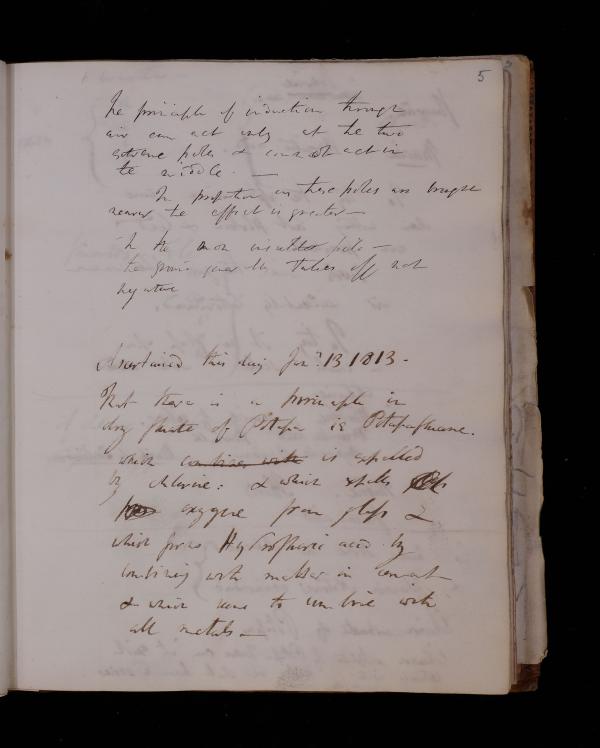 5
The principle of induction through
air can act only at the two
extreme poles & cannot act in
the middle. —
In proportion as these poles are brought
nearer the effect is greater —
In the non insulated pole —
the takes off not
negative
Ascertained this day Jany. 13 1813 -
That there is a principle in
dry fluate of Potassa ie Potassafluane.
which combines with is expelled
by chlorine: & which expells
oxygene from glass &
which forms Hydrofluoric acid by
combining with matter in
& which seems to combine with
all metals —